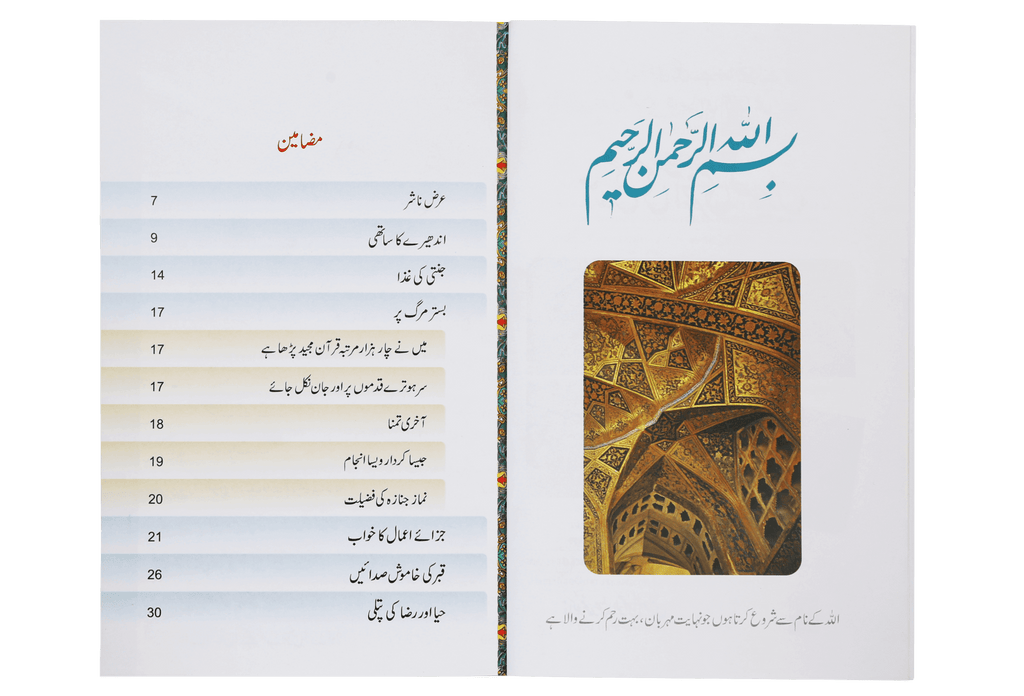 بسم اللہ الرحمن الرحیم
اللہ کے نام سے شروع کرتا ہوں جو نہایت مہربان، بہت رحم کرنے والا ہے
مضامین
عرض ناشر 7
اندھیرے کا ساتھی 9
جنتی کی غذا 14
بستر مرگ پر 17
میں نے چار ہزار مرتبہ قرآن مجید پڑھا ہے 17
سر ہو ترے قدموں پر اور جان نکل جائے 17
آخری تمنا 18
جیسا کردار ویسا انجام 19
نماز جنازہ کی فضیلت 20
جزائے اعمال کا خواب 21
قبر کی خاموش صدائیں 26
حیا اور رضا کی پتلی 30